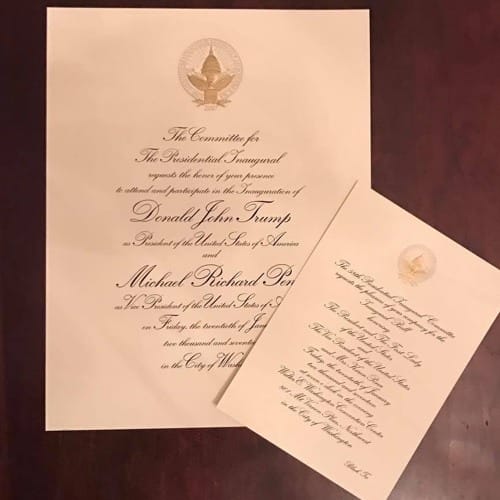 The Committee for
The Presidential Inaugural
requests the honor of your presence
to attend and participate in the Inauguration of
Donald John Trump
as President of the United States of America
and
Michael Richard Pen
as Vice President of the United States of
on Friday, the twentieth of Jan
two thousand and sevent
in the City of Wash
The 58th Presidential Inaugural Committee
requests the pleasure of your company for the
Inaugural Ball
honoring
The President and The First Lady
of the United States
and
The Vice President of the United States
and Mrs. Karen Pence
Friday, the twentieth of January
two thousand and seventeen
at seven o'clock in the evening
Walter E. Washington Convention Center
801 Mt. Vernon Place, Northwest
in the City of Washington
Black Tie